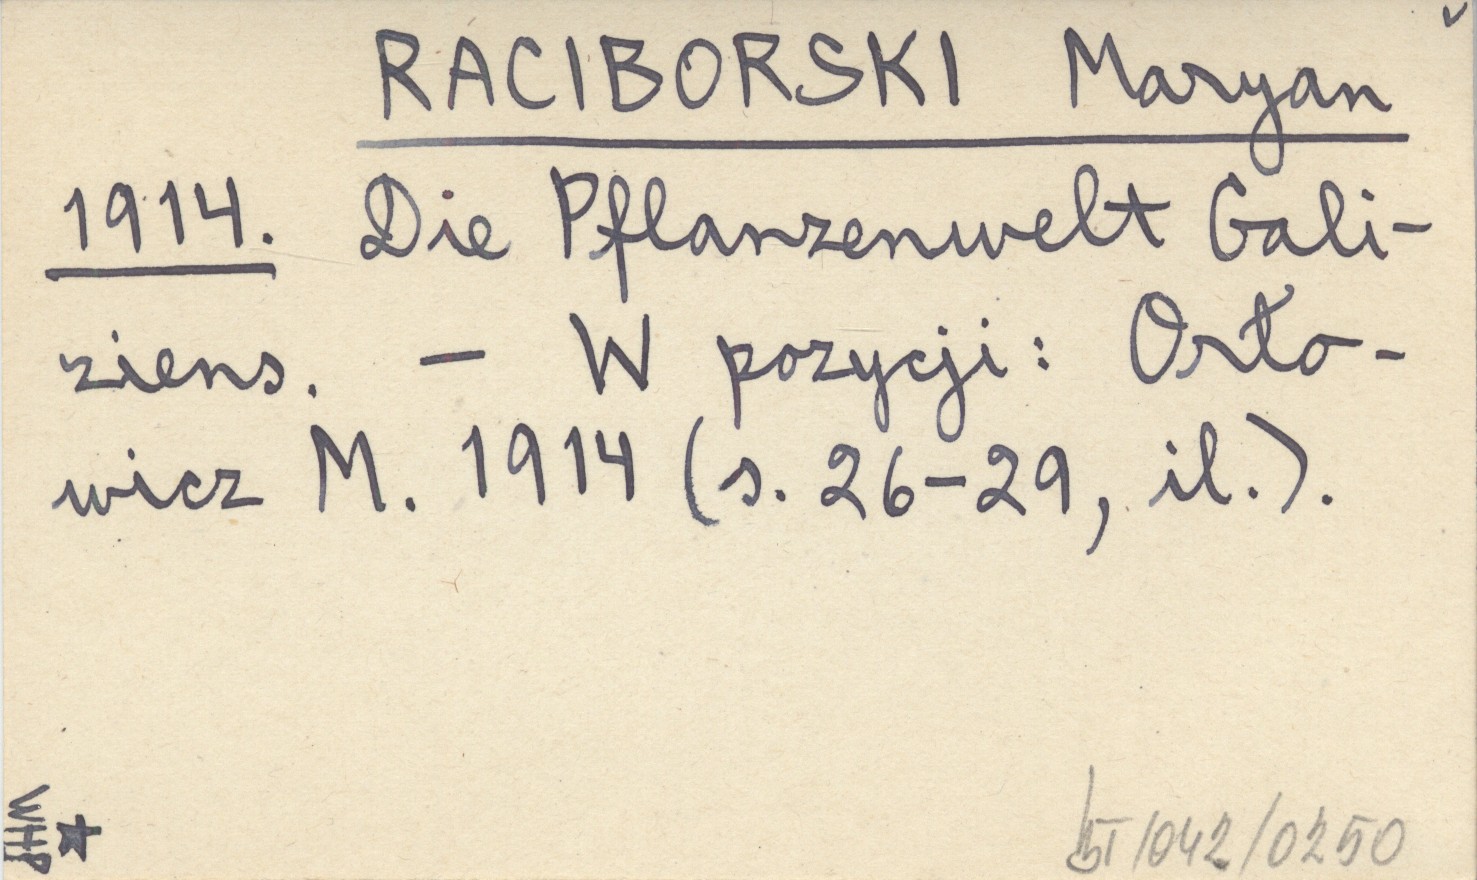 RACIBORSKI Maryan
1914. Die Pflanzenwelt Gali-
ziens. – W pozycji: Orło-
wicz M. 1914 (s. 26–29, il.).
WHP
/042/0250